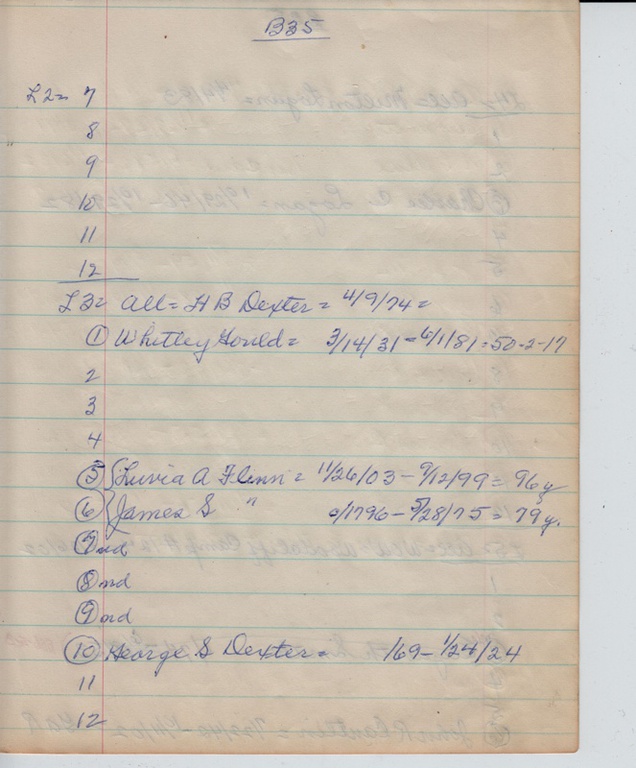 B35
L2= 7
8
9
10
11
12
L3= All= H B Dexter = 4/9/74=
① Whitley Gould = 3/14/31-6/1/81=50-2-17
2
3
4
⑤ {Luvia A Flinn = 11/26/03-9/12/99=96y
⑥ {James S " 0/1796-5/28/75=79y.
⑦ nd
⑧ nd
⑨ nd
⑩ George S Dexter= /69-1/24/24
11
12